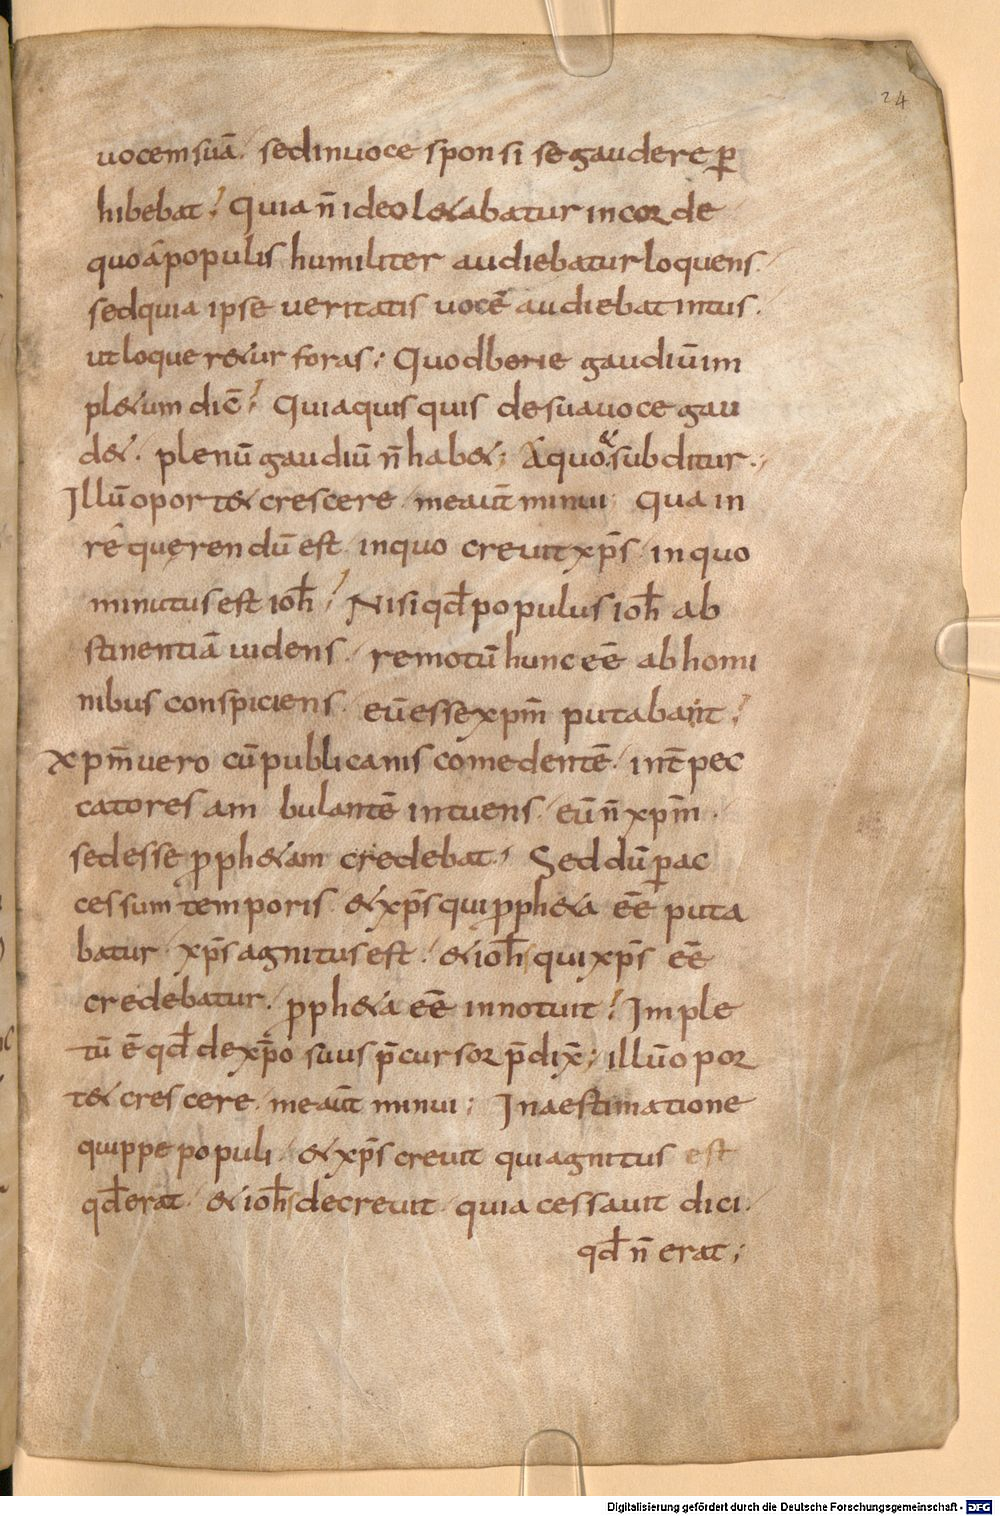 24
uocem suā. sed in uoce sponsi se gaudere ꝑ
hibebat; Quia n̄ ideo l&abatur in corde
quo á populis humiliter audiebatur loquens.
sed quia ipse ueritatis uocē audiebat intus.
ut loquer&ur foras; Quod bene gaudiū im
pl&um dic̄; Quia quisquis de sua uoce gau
d&. plenū gaudiū n̄ hab&; A quo & subditur.
Illū oport& crescere. me aut̄ minui; Qua in
re querendū est. in quo creuit xp̄s. in quo
minutus est ioh̄; Nisi qd̄ populus ioh̄ ab
stinentiā uidens. remotū hunc eē ab homi
nibus conspiciens. eū esse xpm̄ putabant;
Xpm̄ uero cū publicanis comedentē. int̄ pec
catores ambulantē intuens. eū n̄ xpm̄.
sed esse ꝓph&am credebat; Sed dū ꝑ ac
cessum temporis. & xp̄s qui ꝓph&a eē puta
batur. xp̄s agnitus est. & ioh̄s qui xp̄s eē
credebatur. ꝓph&a eē innotuit; Imple
tū ē qd̄ de xp̄o suus p̄cursor p̄dix̄; illū opor
t& crescere. me aut̄ minui; In aestimatione
quippe populi. & xp̄s creuit qui agnitus est
qd̄ erat. & ioh̄s decreuit. quia cessauit dici.
qd̄ n̄ erat;
Digitalisierung gefördert durch die Deutsche Forschungsgemeinschaft - DFG